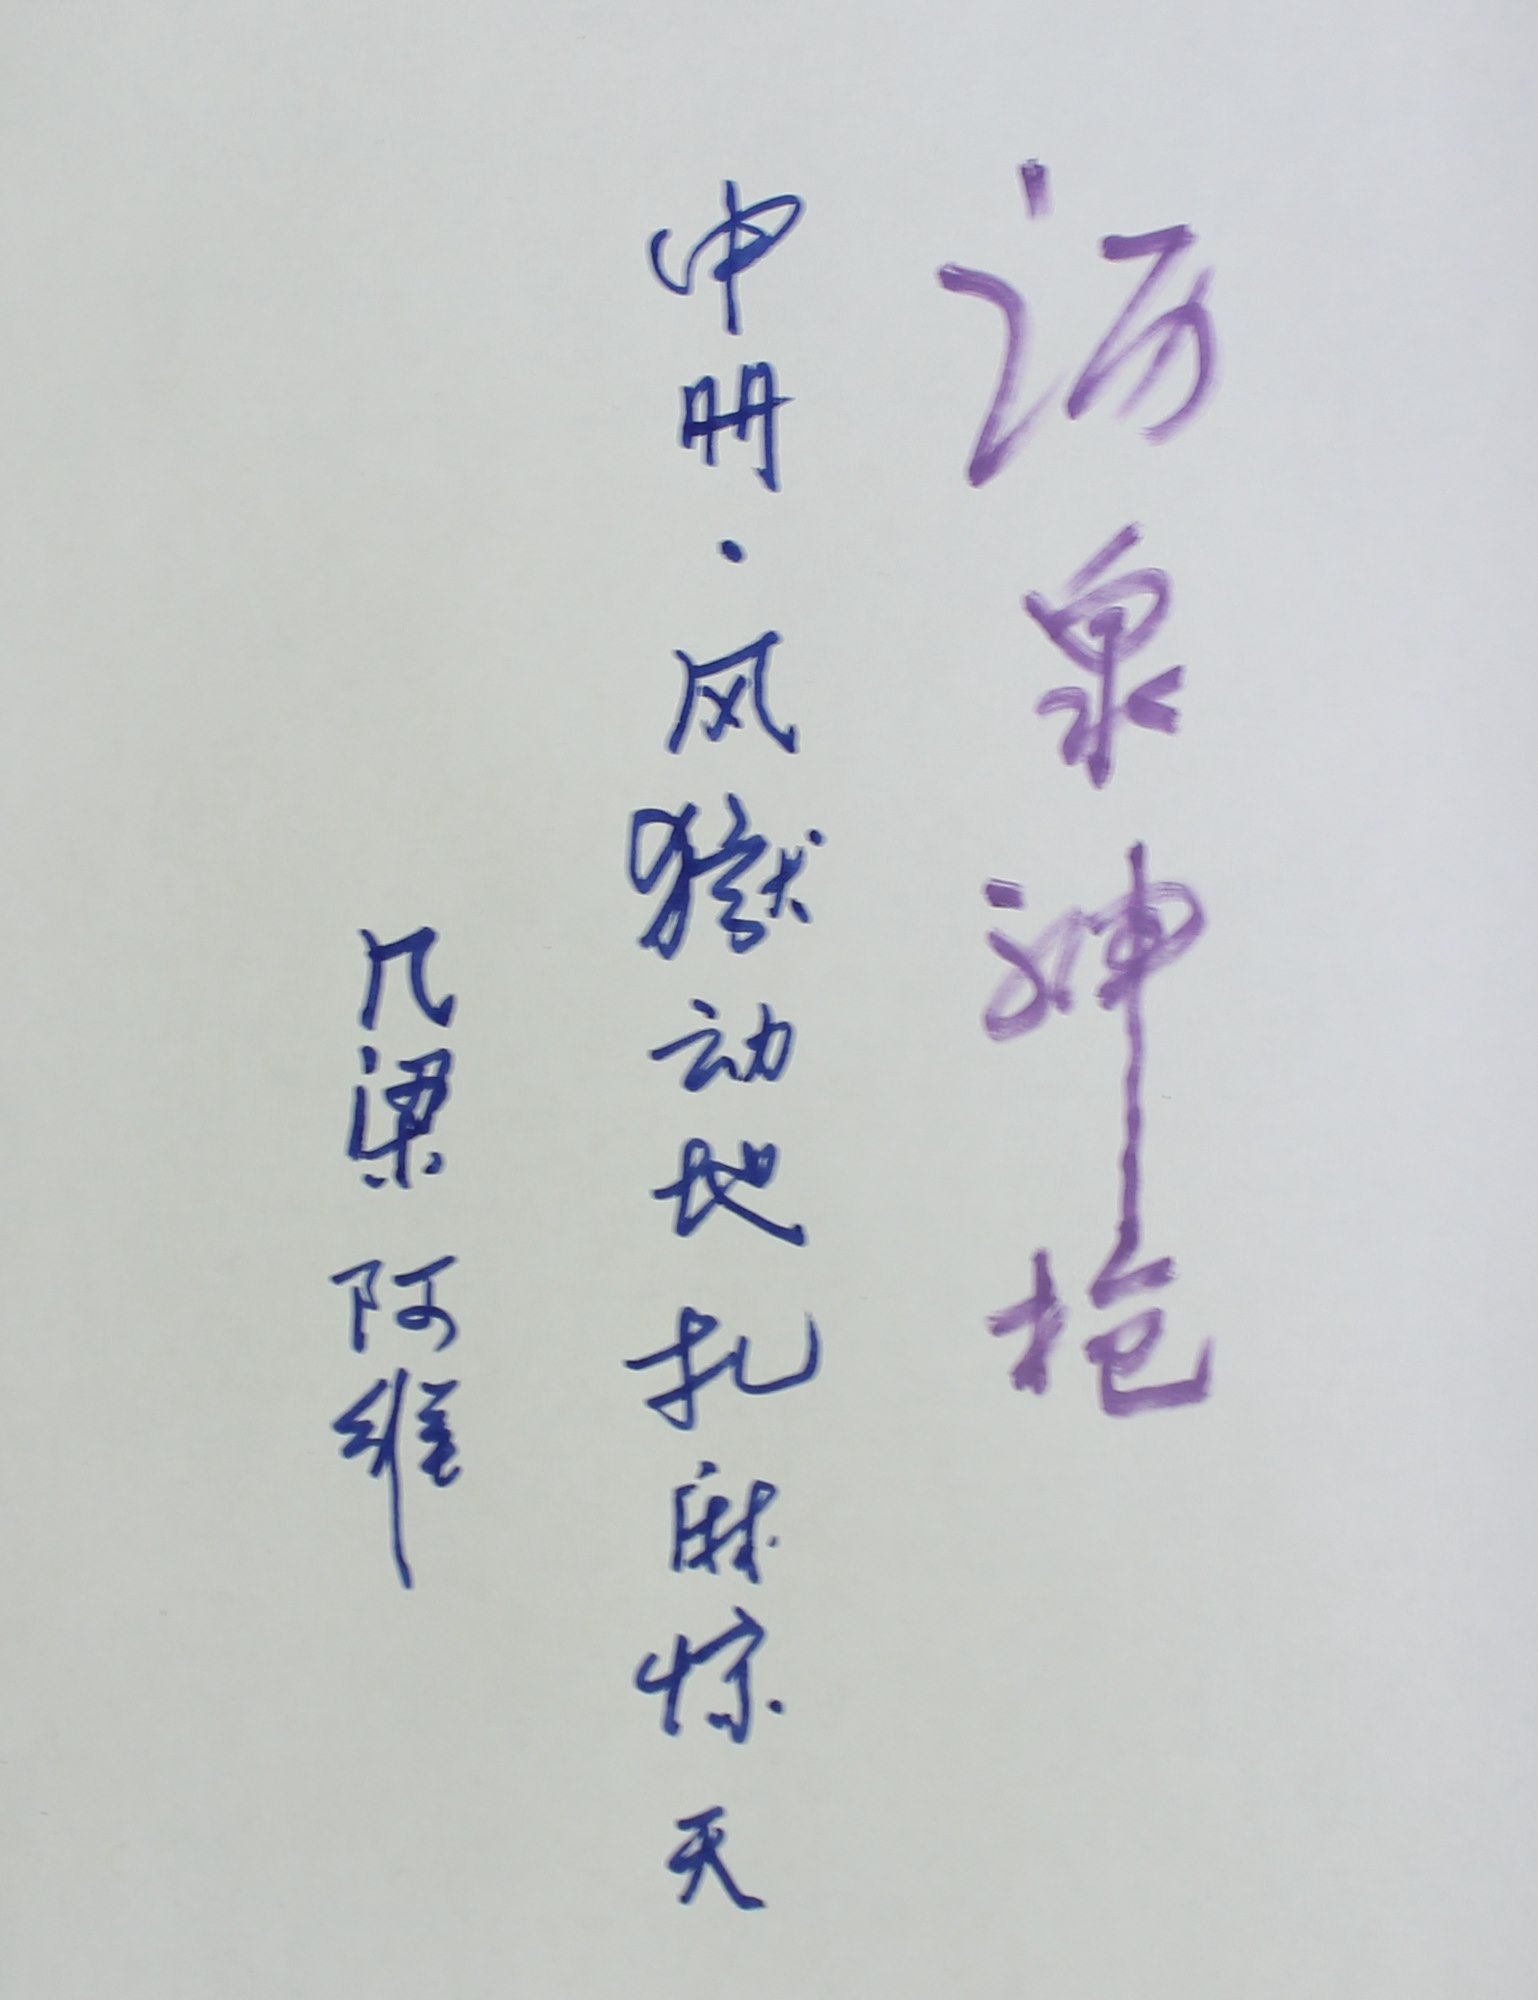 沥泉神枪
中册·风獄动地 扎麻惊天
几梁 阿维